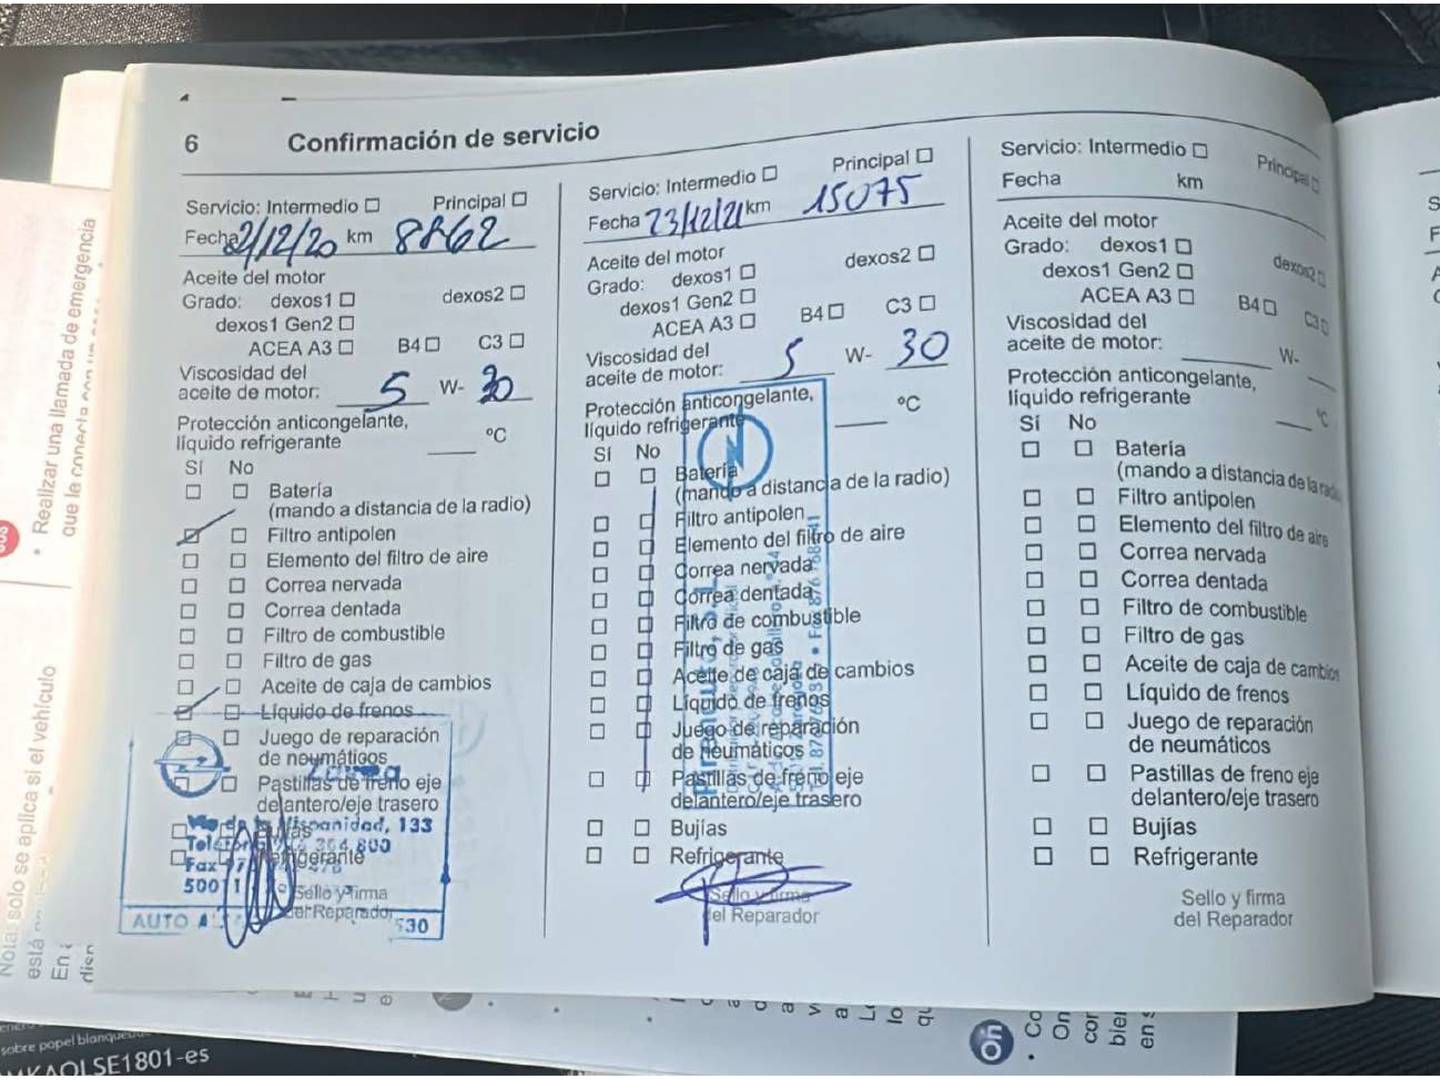 6 Confirmación de servicio
Servicio: Intermedio ☐ Principal ☐
Fecha 2/12/20 km 8862
Aceite del motor
Grado: dexos1 ☐ dexos2 ☐
dexos1 Gen2 ☐
ACEA A3 ☐ B4 ☐ C3 ☐
Viscosidad del
aceite de motor: 5 W- 30
Protección anticongelante,
líquido refrigerante ____ ºC
Sí No
Batería
(mando a distancia de la radio)
Filtro antipolen
Elemento del filtro de aire
Correa nervada
Correa dentada
Filtro de combustible
Filtro de gas
Aceite de caja de cambios
Líquido de frenos
Juego de reparación
de neumáticos
Pastillas de freno eje
delantero/eje trasero
Bujías
Refrigerante
Sello y firma
del Reparador
Hispanidad, 133
AUTO
Servicio: Intermedio ☐ Principal ☐
Fecha 23/12/21 km 15075
Aceite del motor
Grado: dexos1 ☐ dexos2 ☐
dexos1 Gen2 ☐
ACEA A3 ☐ B4 ☐ C3 ☐
Viscosidad del
aceite de motor: 5 W- 30
Protección anticongelante,
líquido refrigerante ____ ºC
Sí No
Batería
(mando a distancia de la radio)
Filtro antipolen
Elemento del filtro de aire
Correa nervada
Correa dentada
Filtro de combustible
Filtro de gas
Aceite de caja de cambios
Líquido de frenos
Juego de reparación
de neumáticos
Pastillas de freno eje
delantero/eje trasero
Bujías
Refrigerante
Sello y firma
del Reparador
Servicio: Intermedio ☐ Principal ☐
Fecha km
Aceite del motor
Grado: dexos1 ☐ dexos2 ☐
dexos1 Gen2 ☐
ACEA A3 ☐ B4 ☐ C3 ☐
Viscosidad del
aceite de motor: ____ W- ____
Protección anticongelante,
líquido refrigerante ____ ºC
Sí No
Batería
(mando a distancia de la radio)
Filtro antipolen
Elemento del filtro de aire
Correa nervada
Correa dentada
Filtro de combustible
Filtro de gas
Aceite de caja de cambios
Líquido de frenos
Juego de reparación
de neumáticos
Pastillas de freno eje
delantero/eje trasero
Bujías
Refrigerante
Sello y firma
del Reparador
• Realizar una llamada de emergencia
Nota: solo se aplica si el vehículo
sobre papel
MKAOLSE1801-es
On